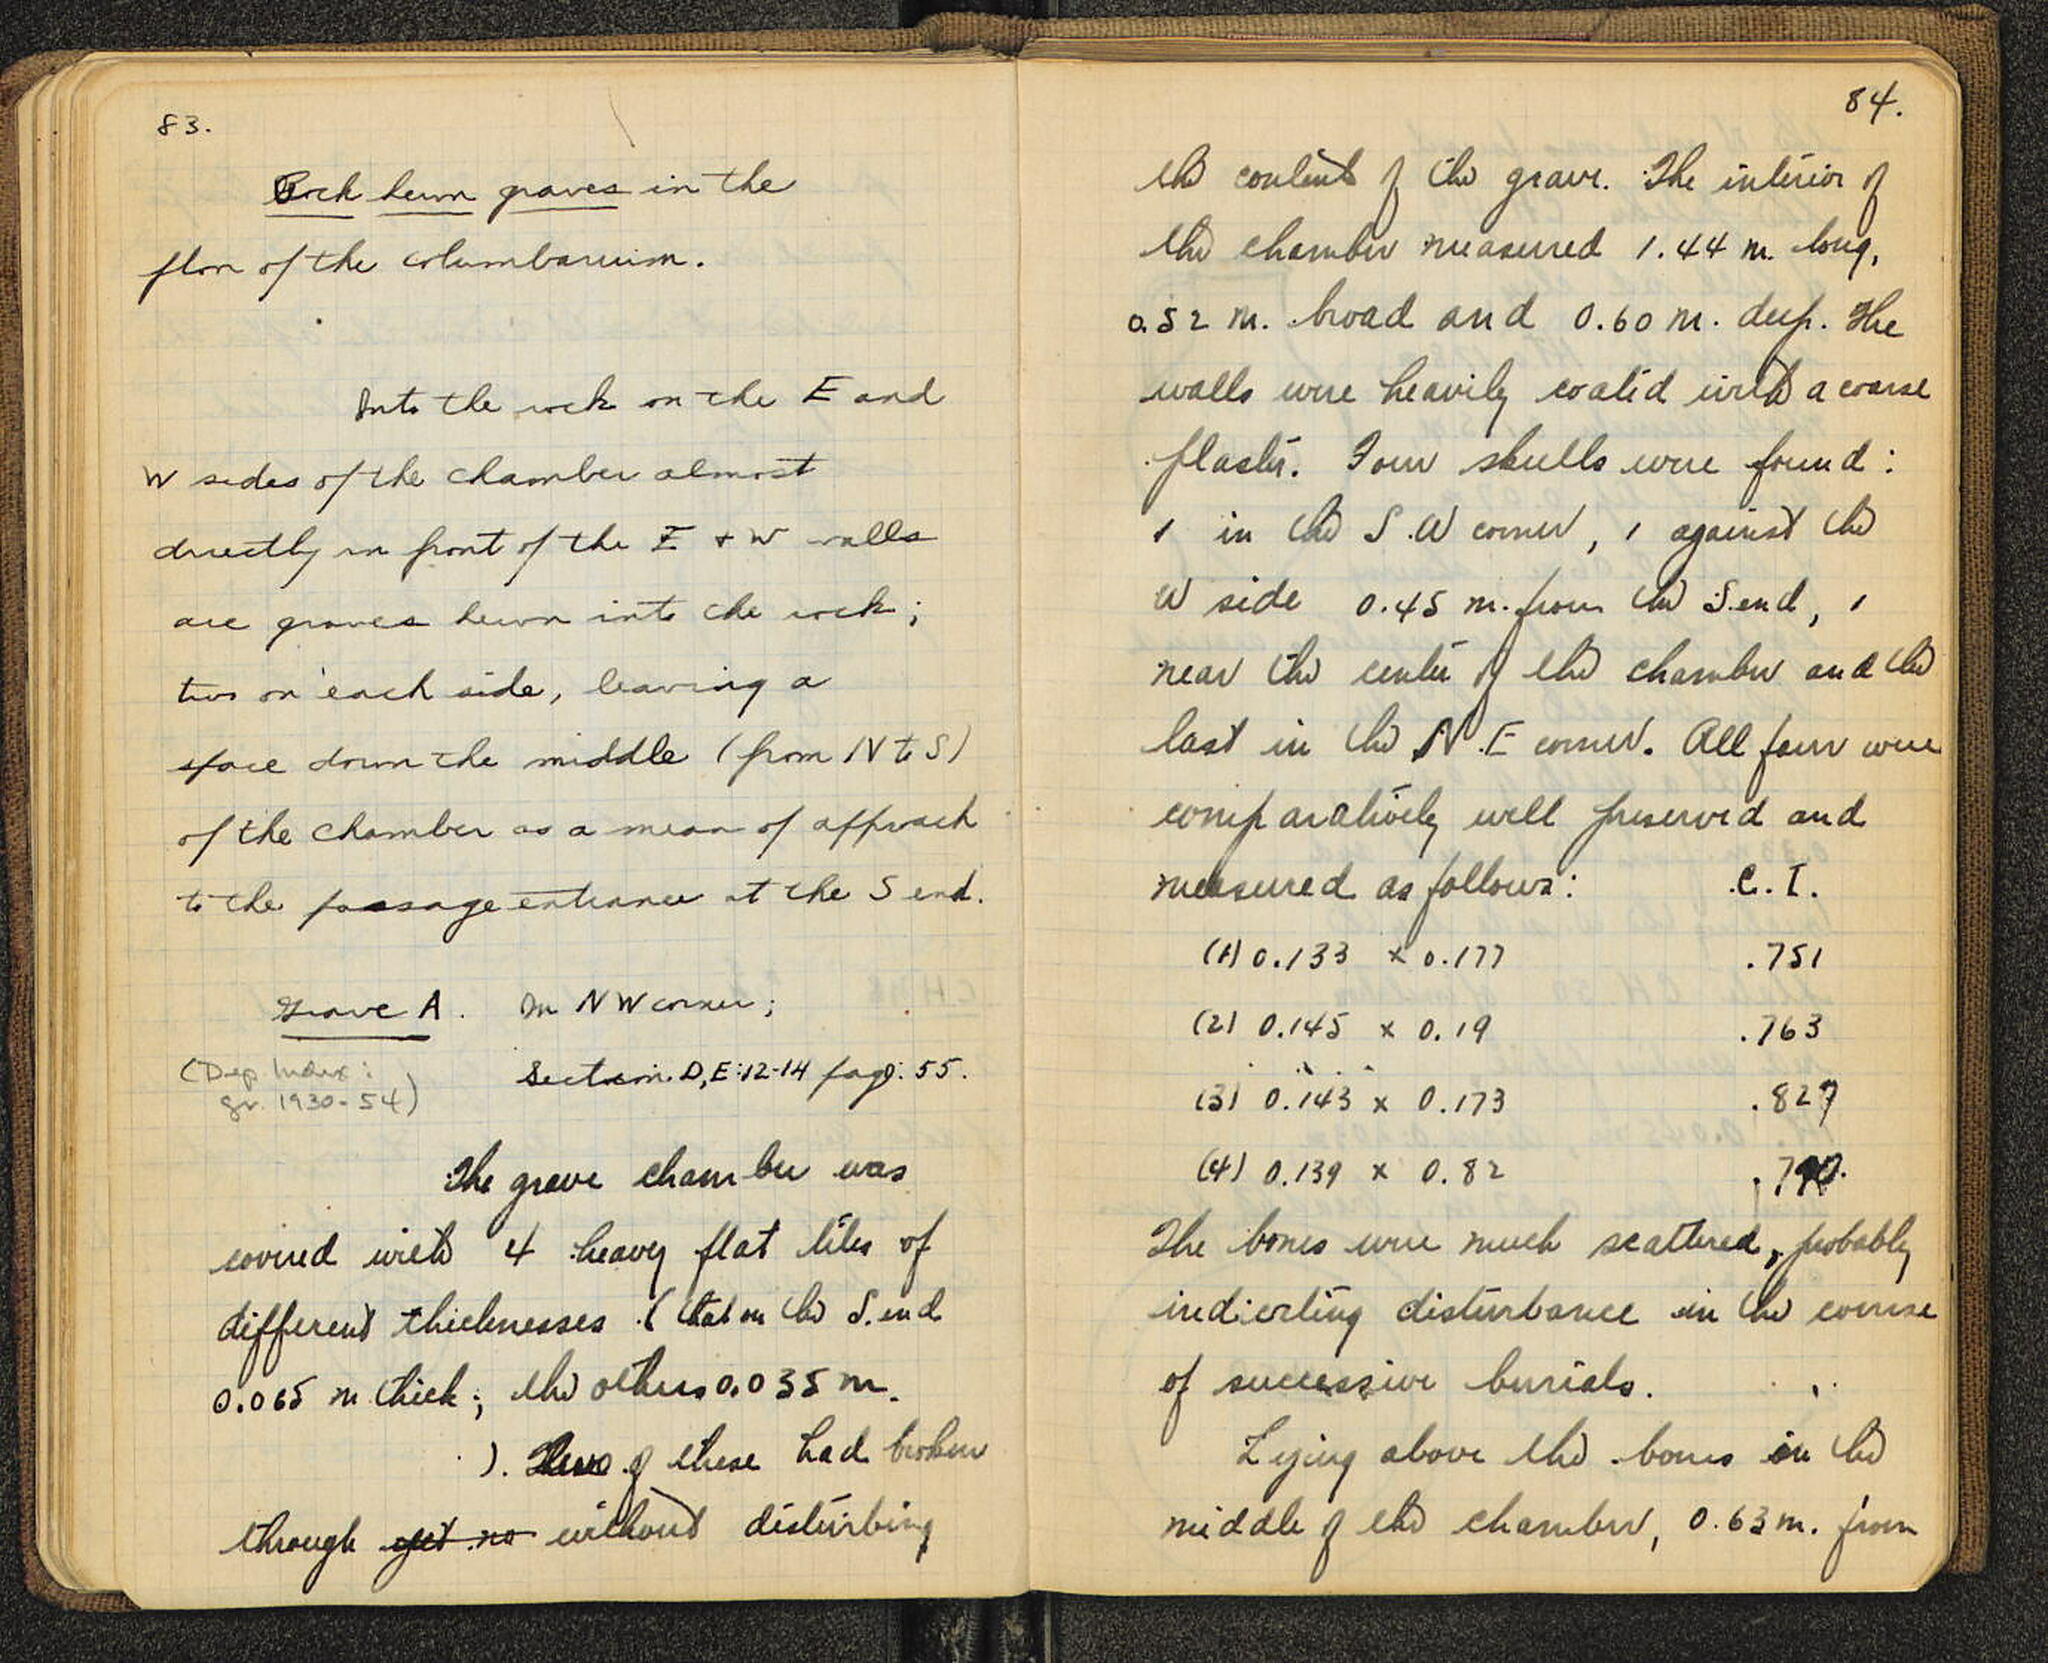 83.
Rock hewn graves in the
floor of the columbarium.
Into the rock on the E and
W sides of the chamber almost
directly in front of the E + W walls
are graves hewn into the rock;
two on each side, leaving a
space down the middle (from N to S)
of the chamber as a mean of approach
to the passage entrance at the S end.
Grave A. In NW corner;
(Dep Index: Section D, E:12-14 page: 55.
gr. 1930-54)
The grave chamber was
covered with 4 heavy flat tiles of
different thicknesses (that on the S. end
0.065 m thick; the others 0.035 m.
). of these had broken
through yet no without disturbing
84.
the contents of the grave. The interior of
the chamber measured 1.44 m. long,
0.52 m. broad and 0.60 m. deep. The
walls were heavily coated with a coarse
plaster. Four skulls were found:
1 in the S.W corner, 1 against the
W side 0.45 m. from the S. end, 1
near the center of the chamber and the
last in the N.E corner. All four were
comparatively well preserved and
measured as follows: C.I.
(1) 0.133 x 0.177 .751
(2) 0.145 x 0.19 .763
(3) 0.143 x 0.173 .827
(4) 0.139 x 0.82 .790.
The bones were much scattered, probably
indicating disturbance in the course
of successive burials.
Lying above the bones in the
middle of the chamber, 0.63 m. from